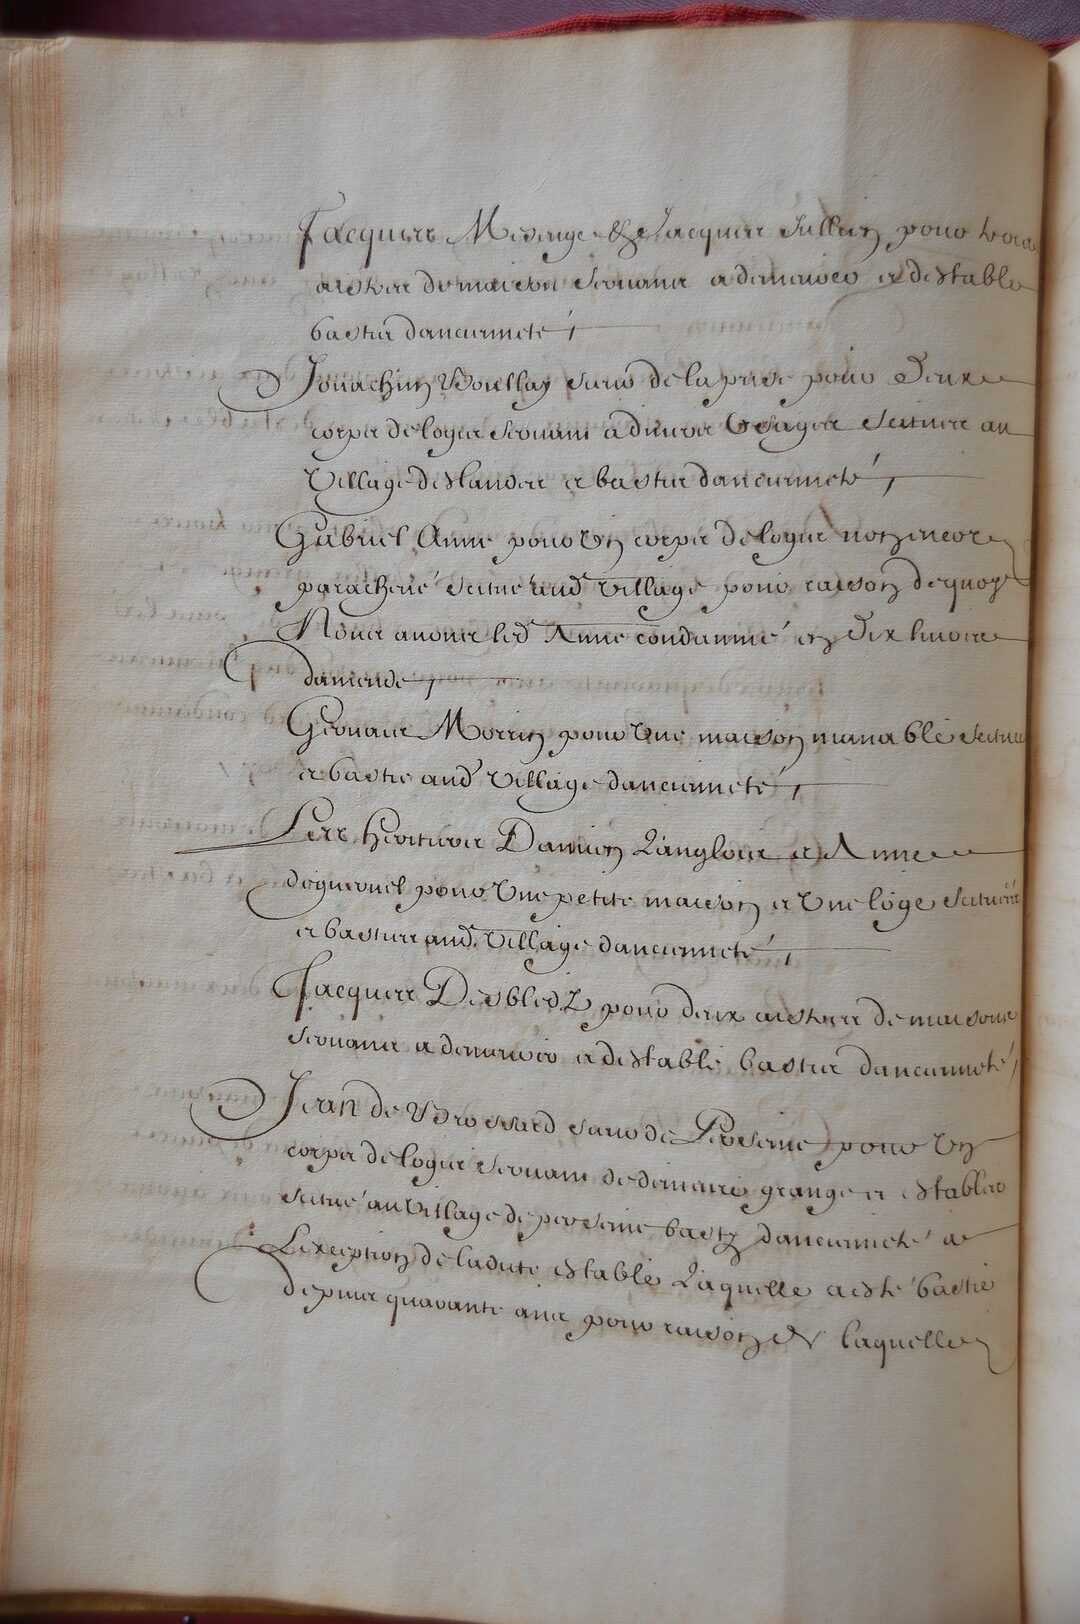 Jacques Mesenge & Jacques Jullien pour trois
aistres de maison servans a demeures et destable
bastis dancienneté
Jouachin Boullay sieur de la prise pour Deux
corps de logis servant a divers Usages scituez au
Village deslandes et bastis danciennetè
Gabriel Anne pour Un corps de logis non encore
parachevé scitué aud Village pour raison dequoy
Nous avons led Anne condamné en Dix livres
damende
Gervais Morin pour Une maison manable scituee
et bastie aud Village danciennetè
Les heritiers Damien Langlois et Anne
pour Une petite maison et Une loge scituées
et basties aud Village danciennetè
Jacques Desbledz pour deux aistres de maisons
servans a demeures et destable bastis danciennetè
Jean de Brossard sieur de Perseine pour Un
corps de logis servant de demeure grange et estables
scitué au Village de perseine basty danciennetè a
Lexception de ladite estable Laquelle a estè bastie
Depuis quarante ans pour raison de laquelle